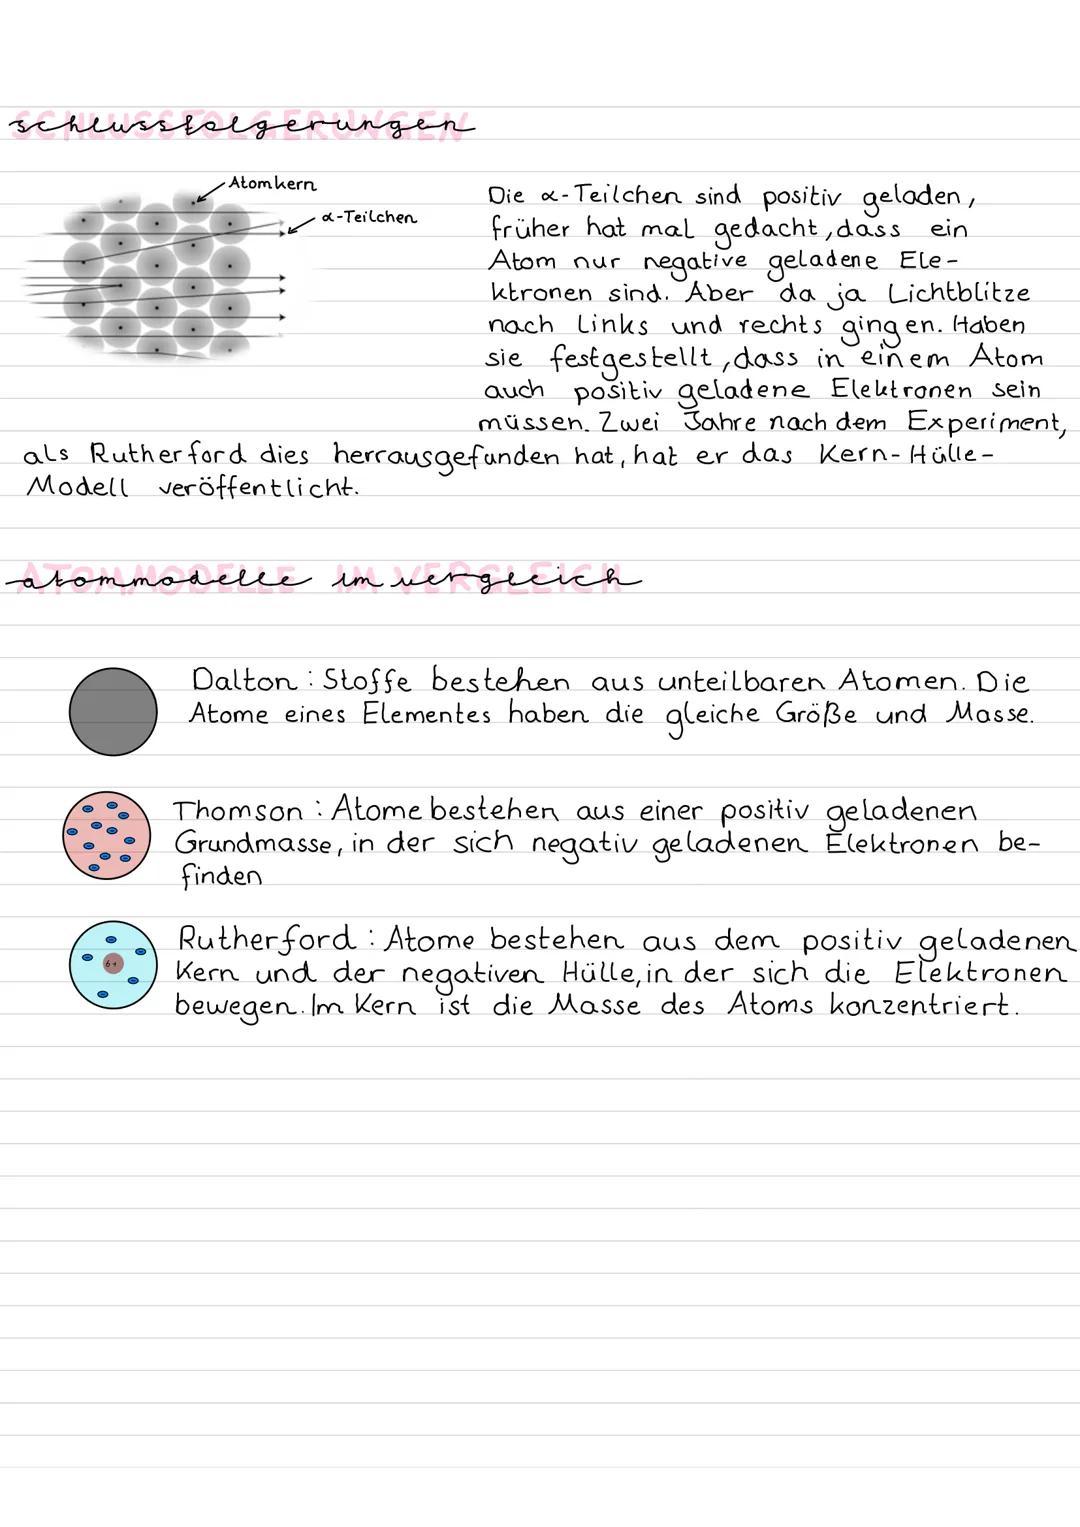 SCHLUSSFOLGERUNGEN
schlussfolgerungen
Atomkern
α-Teilchen
Die α-Teilchen sind positiv geladen,
früher hat mal gedacht, dass ein
Atom nur negative geladene Ele-
ktronen sind. Aber da ja Lichtblitze
nach links und rechts gingen. Haben
sie festgestellt, dass in einem Atom
auch positiv geladene Elektronen sein
müssen. Zwei Jahre nach dem Experiment,
als Rutherford dies herrausgefunden hat, hat er das Kern-Hülle-
Modell veröffentlicht.
ATOMMODELLE IM VERGLEICH
atommodelle im vergleich
Dalton: Stoffe bestehen aus unteilbaren Atomen. Die
Atome eines Elementes haben die gleiche Größe und Masse.
Thomson: Atome bestehen aus einer positiv geladenen
Grundmasse, in der sich negativ geladenen Elektronen be-
finden
Rutherford: Atome bestehen aus dem positiv geladenen
6+
Kern und der negativen Hülle, in der sich die Elektronen
bewegen. Im Kern ist die Masse des Atoms konzentriert.